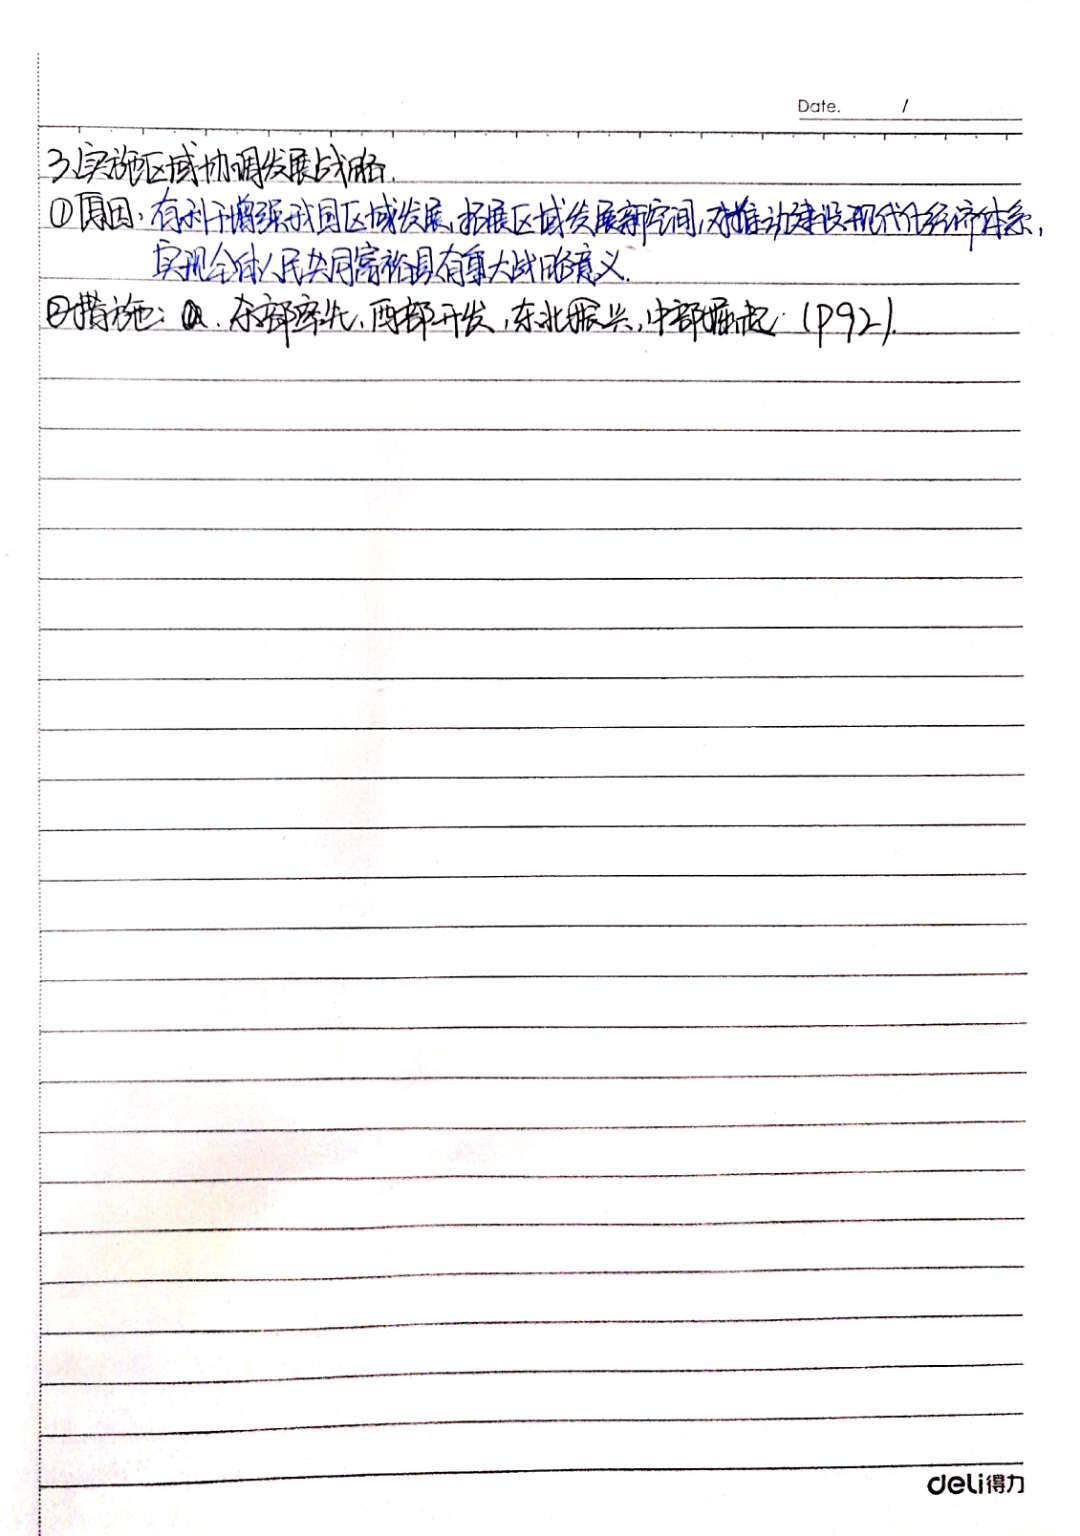 Date. /
3、实施区域协调发展战略.
①原因：有利于增强我国区域发展，拓展区域发展新空间，对推动建设现代化经济体系，
实现全体人民共同富裕具有重大战略意义.
②措施：a. 东部率先，西部开发，东北振兴，中部崛起. (P92).
deli得力